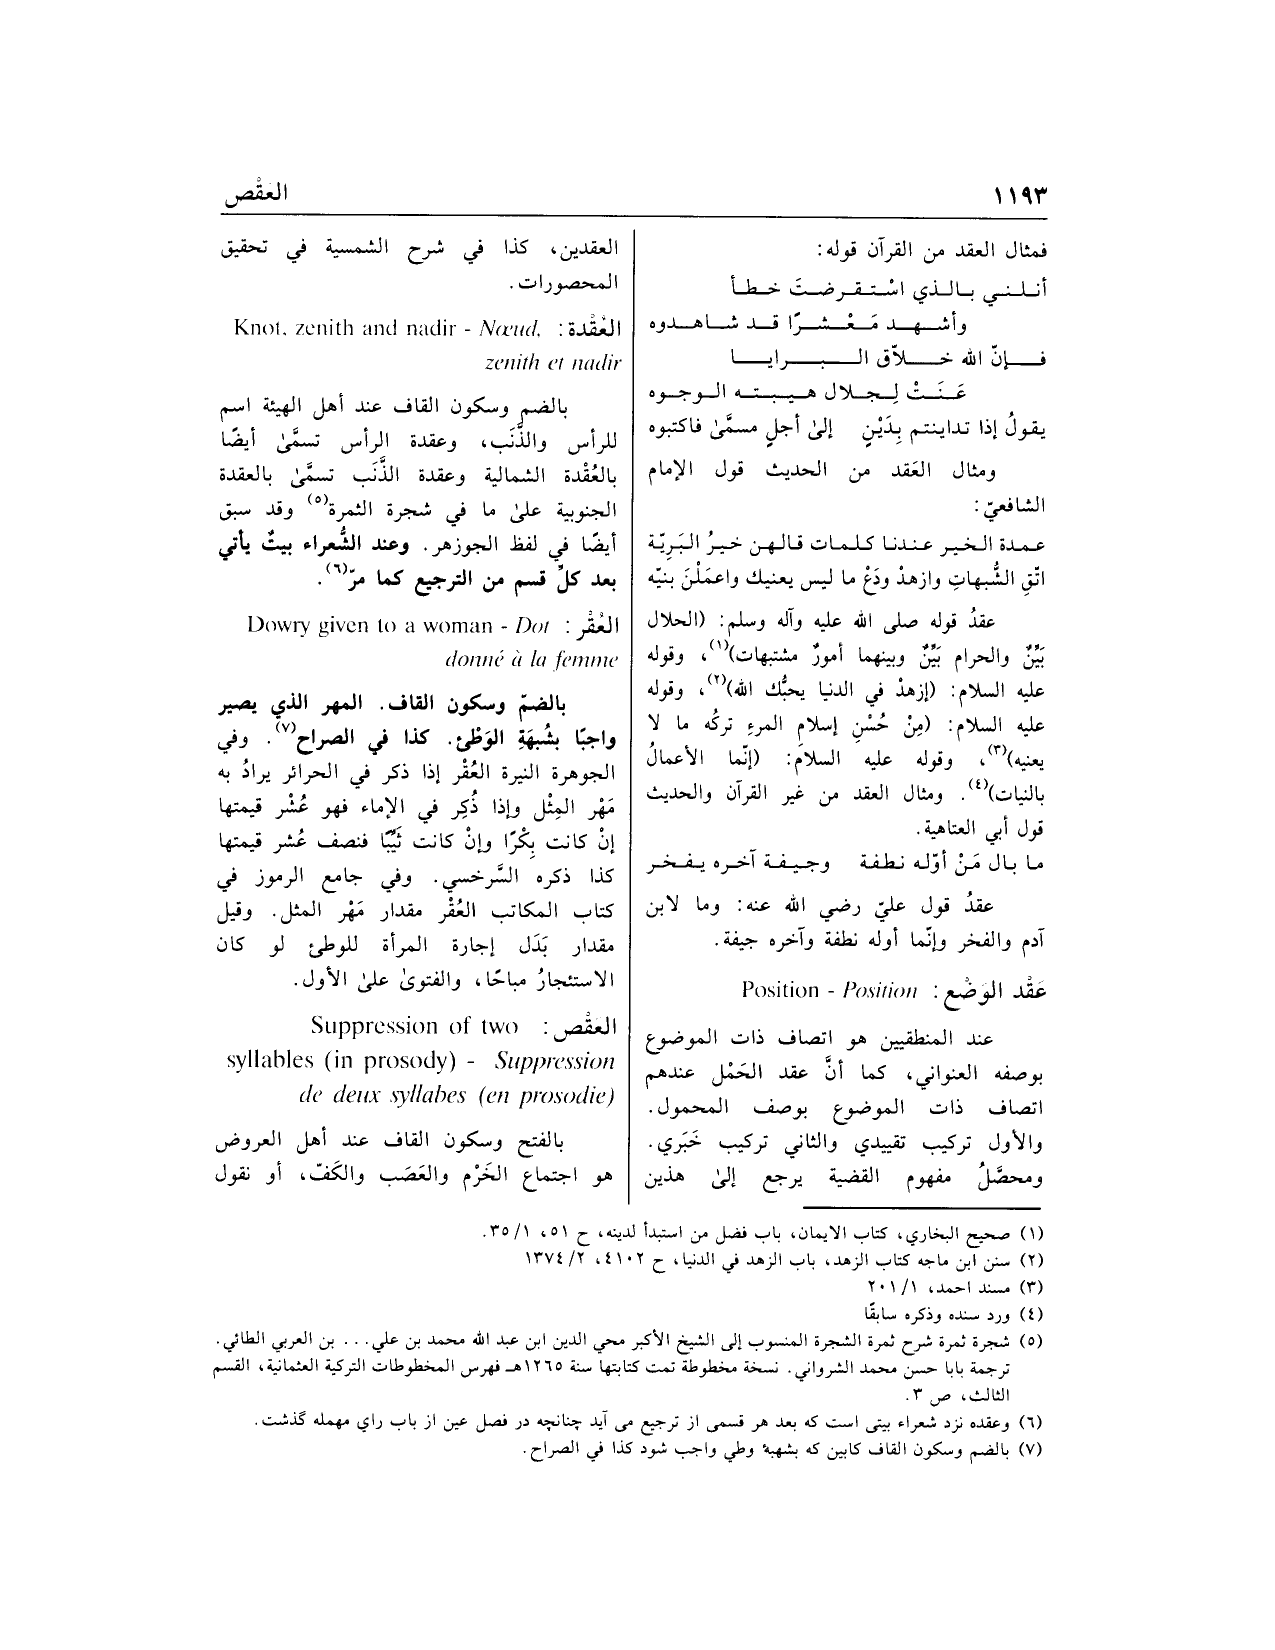 ١١٩٣
العَقْص
فمثال العقد من القرآن قوله:
أنلـني بـالـذي اسْـتـقـرضـتَ خـطـأ
وأشـهـد مَـعْـشـرًا قـد شـاهـدوه
فـإنّ الله خـلاّق الـبـرايـا
عَـنَـتْ لِـجـلال هـيـبـتـه الـوجـوه
يقولُ إذا تداينتم بِدَيْنٍ إلىٰ أجلٍ مسمًّى فاكتبوه
ومثال العَقد من الحديث قول الإمام
الشافعيّ:
عـمـدة الـخـيـر عـنـدنـا كـلـمـات قـالـهـن خـيـرُ الـبَـرِيّـة
اتّقِ الشُّبهاتِ وازهدْ ودَعْ ما ليس يعنيك واعمَلْنَ بنيّه
عقدُ قوله صلى الله عليه وآله وسلم: (الحلال
بَيِّنٌ والحرام بَيِّنٌ وبينهما أمورٌ مشتبهات)(١)، وقوله
عليه السلام: (إزهدْ في الدنيا يحبُّك الله)(٢)، وقوله
عليه السلام: (مِنْ حُسْنِ إسلامِ المرءِ تركُه ما لا
يعنيه)(٣)، وقوله عليه السلام: (إنّما الأعمالُ
بالنيات)(٤). ومثال العقد من غير القرآن والحديث
قول أبي العتاهية.
ما بـال مَـنْ أوّلـه نـطـفـة وجـيـفـة آخـره يـفـخـر
عقدُ قول عليّ رضي الله عنه: وما لابن
آدم والفخر وإنّما أوله نطفة وآخره جيفة.
عَقْد الوَضْع: Position - Position
عند المنطقيين هو اتصاف ذات الموضوع
بوصفه العنواني، كما أنَّ عقد الحَمْل عندهم
اتصاف ذات الموضوع بوصف المحمول.
والأول تركيب تقييدي والثاني تركيب خَبَري.
ومحصَّلُ مفهوم القضية يرجع إلىٰ هذين
العقدين، كذا في شرح الشمسية في تحقيق
المحصورات.
العُقْدة: Knot, zenith and nadir - Nœud,
zenith et nadir
بالضم وسكون القاف عند أهل الهيئة اسم
للرأس والذَّنَب، وعقدة الرأس تسمَّىٰ أيضًا
بالعُقْدة الشمالية وعقدة الذَّنَب تسمَّىٰ بالعقدة
الجنوبية علىٰ ما في شجرة الثمرة(٥) وقد سبق
أيضًا في لفظ الجوزهر. وعند الشُّعراء بيتٌ يأتي
بعد كلِّ قسم من الترجيع كما مرّ(٦).
العُقْر: Dowry given to a woman - Dot
donné à la femme
بالضمّ وسكون القاف. المهر الذي يصير
واجبًا بشُبهَةِ الوَطْئ. كذا في الصراح(٧). وفي
الجوهرة النيرة العُقْر إذا ذكر في الحرائر يرادُ به
مَهْر المِثْل وإذا ذُكِر في الإماء فهو عُشْر قيمتها
إنْ كانت بِكْرًا وإنْ كانت ثَيِّبًا فنصف عُشر قيمتها
كذا ذكره السَّرخسي. وفي جامع الرموز في
كتاب المكاتب العُقْر مقدار مَهْر المثل. وقيل
مقدار بَدَل إجارة المرأة للوطئ لو كان
الاستئجارُ مباحًا، والفتوىٰ علىٰ الأول.
العَقْص: Suppression of two
syllables (in prosody) - Suppression
de deux syllabes (en prosodie)
بالفتح وسكون القاف عند أهل العروض
هو اجتماع الخَرْم والعَصَب والكَفّ، أو نقول
(١) صحيح البخاري، كتاب الايمان، باب فضل من استبدأ لدينه، ح ٥١، ١/ ٣٥.
(٢) سنن ابن ماجه كتاب الزهد، باب الزهد في الدنيا، ح ٤١٠٢، ٢/ ١٣٧٤
(٣) مسند احمد، ١/ ٢٠١
(٤) ورد سنده وذكره سابقًا
(٥) شجرة ثمرة شرح ثمرة الشجرة المنسوب إلى الشيخ الأكبر محي الدين ابن عبد الله محمد بن علي... بن العربي الطائي.
ترجمة بابا حسن محمد الشرواني. نسخة مخطوطة تمت كتابتها سنة ١٢٦٥هـ فهرس المخطوطات التركية العثمانية، القسم
الثالث، ص ٣.
(٦) وعقده نزد شعراء بيتى است كه بعد هر قسمى از ترجيع مى آيد چنانچه در فصل عين از باب راي مهمله گذشت.
(٧) بالضم وسكون القاف كابين كه بشبهۀ وطي واجب شود كذا في الصراح.